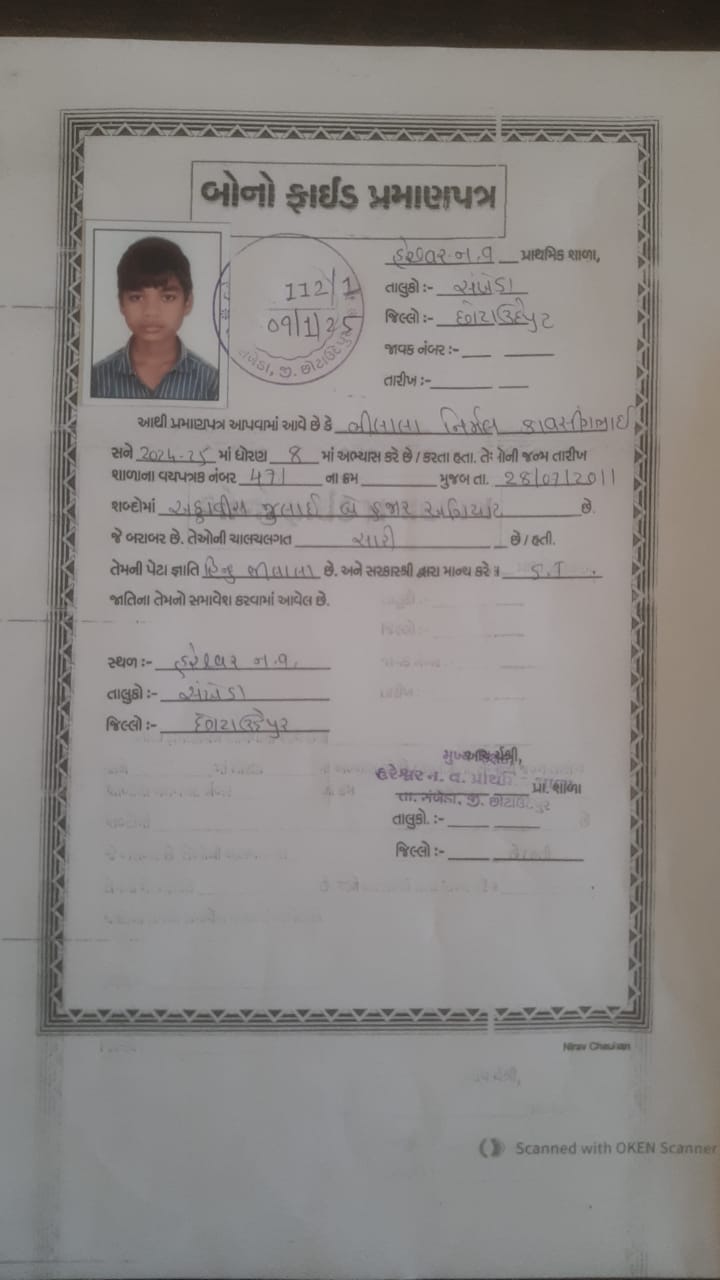 બોનો ફાઈડ પ્રમાણપત્ર
હરેશ્વર ન.વ પ્રાથમિક શાળા,
112/1
09/1/25
તાલુકો :- સંખેડા
જિલ્લો :- છોટાઉદેપુર
સંખેડા, જી. છોટાઉદેપુર
જાવક નંબર :-
તારીખ :-
આથી પ્રમાણપત્ર આપવામાં આવે છે કે ભીલાલા નિર્મલ
સને 2024-25 માં ધોરણ 8 માં અભ્યાસ કરે છે / કરતા હતા. તેઓની જન્મ તારીખ
શાળાના વયપત્રક નંબર 471 ના ક્રમ મુજબ તા. 28/07/2011
શબ્દોમાં અઠ્ઠાવીસ જુલાઈ બે હજાર અગિયાર છે.
જે બરાબર છે. તેઓની ચાલચલગત સારી છે / હતી.
તેમની પેટા જ્ઞાતિ હિન્દુ ભીલાલા છે. અને સરકારશ્રી દ્વારા માન્ય કરેલ S.T.
જાતિના તેમનો સમાવેશ કરવામાં આવેલ છે.
સ્થળ :- હરેશ્વર ન.વ.
તાલુકો :- સંખેડા
જિલ્લો :- છોટાઉદેપુર
હરેશ્વર ન. વ. પ્રાથમિક
પ્રા. શાળા
તા. સંખેડા, જી. છોટાઉદેપુર
તાલુકો. :-
જિલ્લો :-
Nirav Chauhan
Scanned with OKEN Scanner